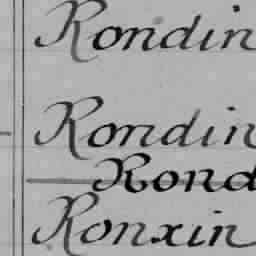 Rondin
Rondin
Rond
Ronxin